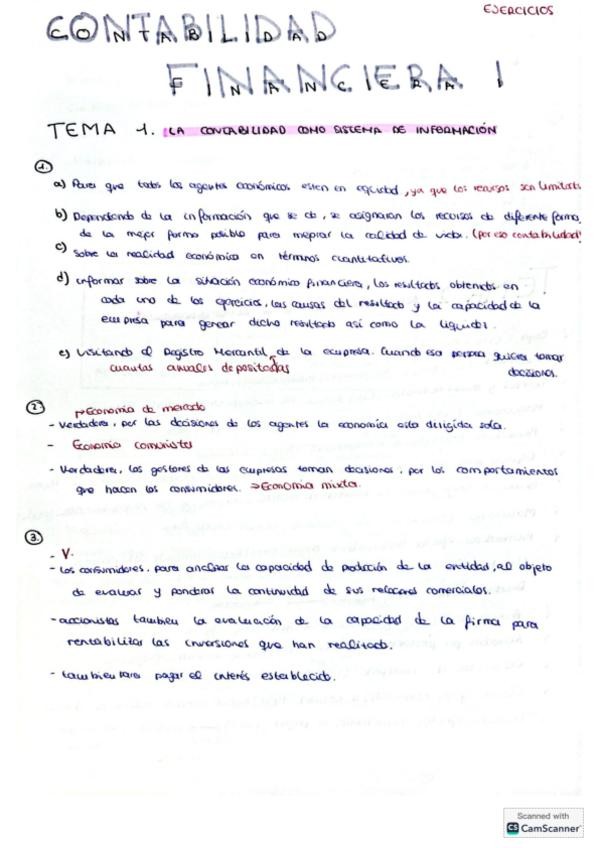 EJERCICIOS
CONTABILIDAD
FINANCIERA I
TEMA 1. LA CONTABILIDAD COMO SISTEMA DE INFORMACIÓN
1.
a) Para que todos los agentes económicos esten en equidad, ya que los recursos son limitados
b) Dependiendo de la información que se de, se asignaran los recursos de diferente forma,
de la mejor forma posible para mejorar la calidad de vida. (por eso contabilidad)
c) Sobre la realidad económica en términos cuantitativos.
d) informar sobre la situación económica financiera, los resultados obtenidos en
cada uno de los ejercicios, las causas del resultado y la capacidad de la
empresa para generar dicho resultado así como la liquidez.
e) Visitando el Registro Mercantil de la empresa. Cuando esa persona quiera tomar
cuentas anuales depositadas decisiones.
2.
→ Economía de mercado
- Verdadera, por las decisiones de los agentes la economía esta dirigida sola.
- Economía comunista
- Verdadera, los gestores de las empresas toman decisiones, por los comportamientos
que hacen los consumidores. ⇒ Economía mixta.
3.
- V.
- Los consumidores, para analizar la capacidad de producción de la entidad, al objeto
de evaluar y ponderar la continuidad de sus relaciones comerciales.
- accionistas tambien la evaluación de la capacidad de la firma para
rentabilizar las inversiones que han realizado.
- tambien para pagar el interés establecido.
Scanned with
CS CamScanner